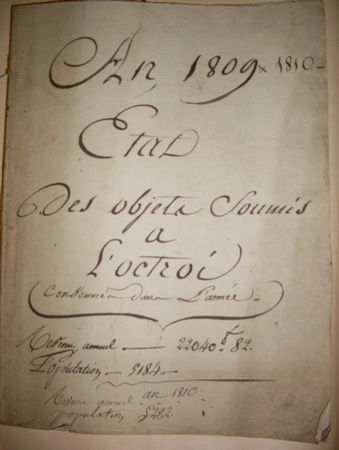 An 1809 x 1810 -
Etat
Des objets Soumis
a
L'octroi
Consommés dans L'année -
Revenu annuel — 22040 f 82.
Population — 5184 —
Revenu annuel an 1810.
population, 5282.